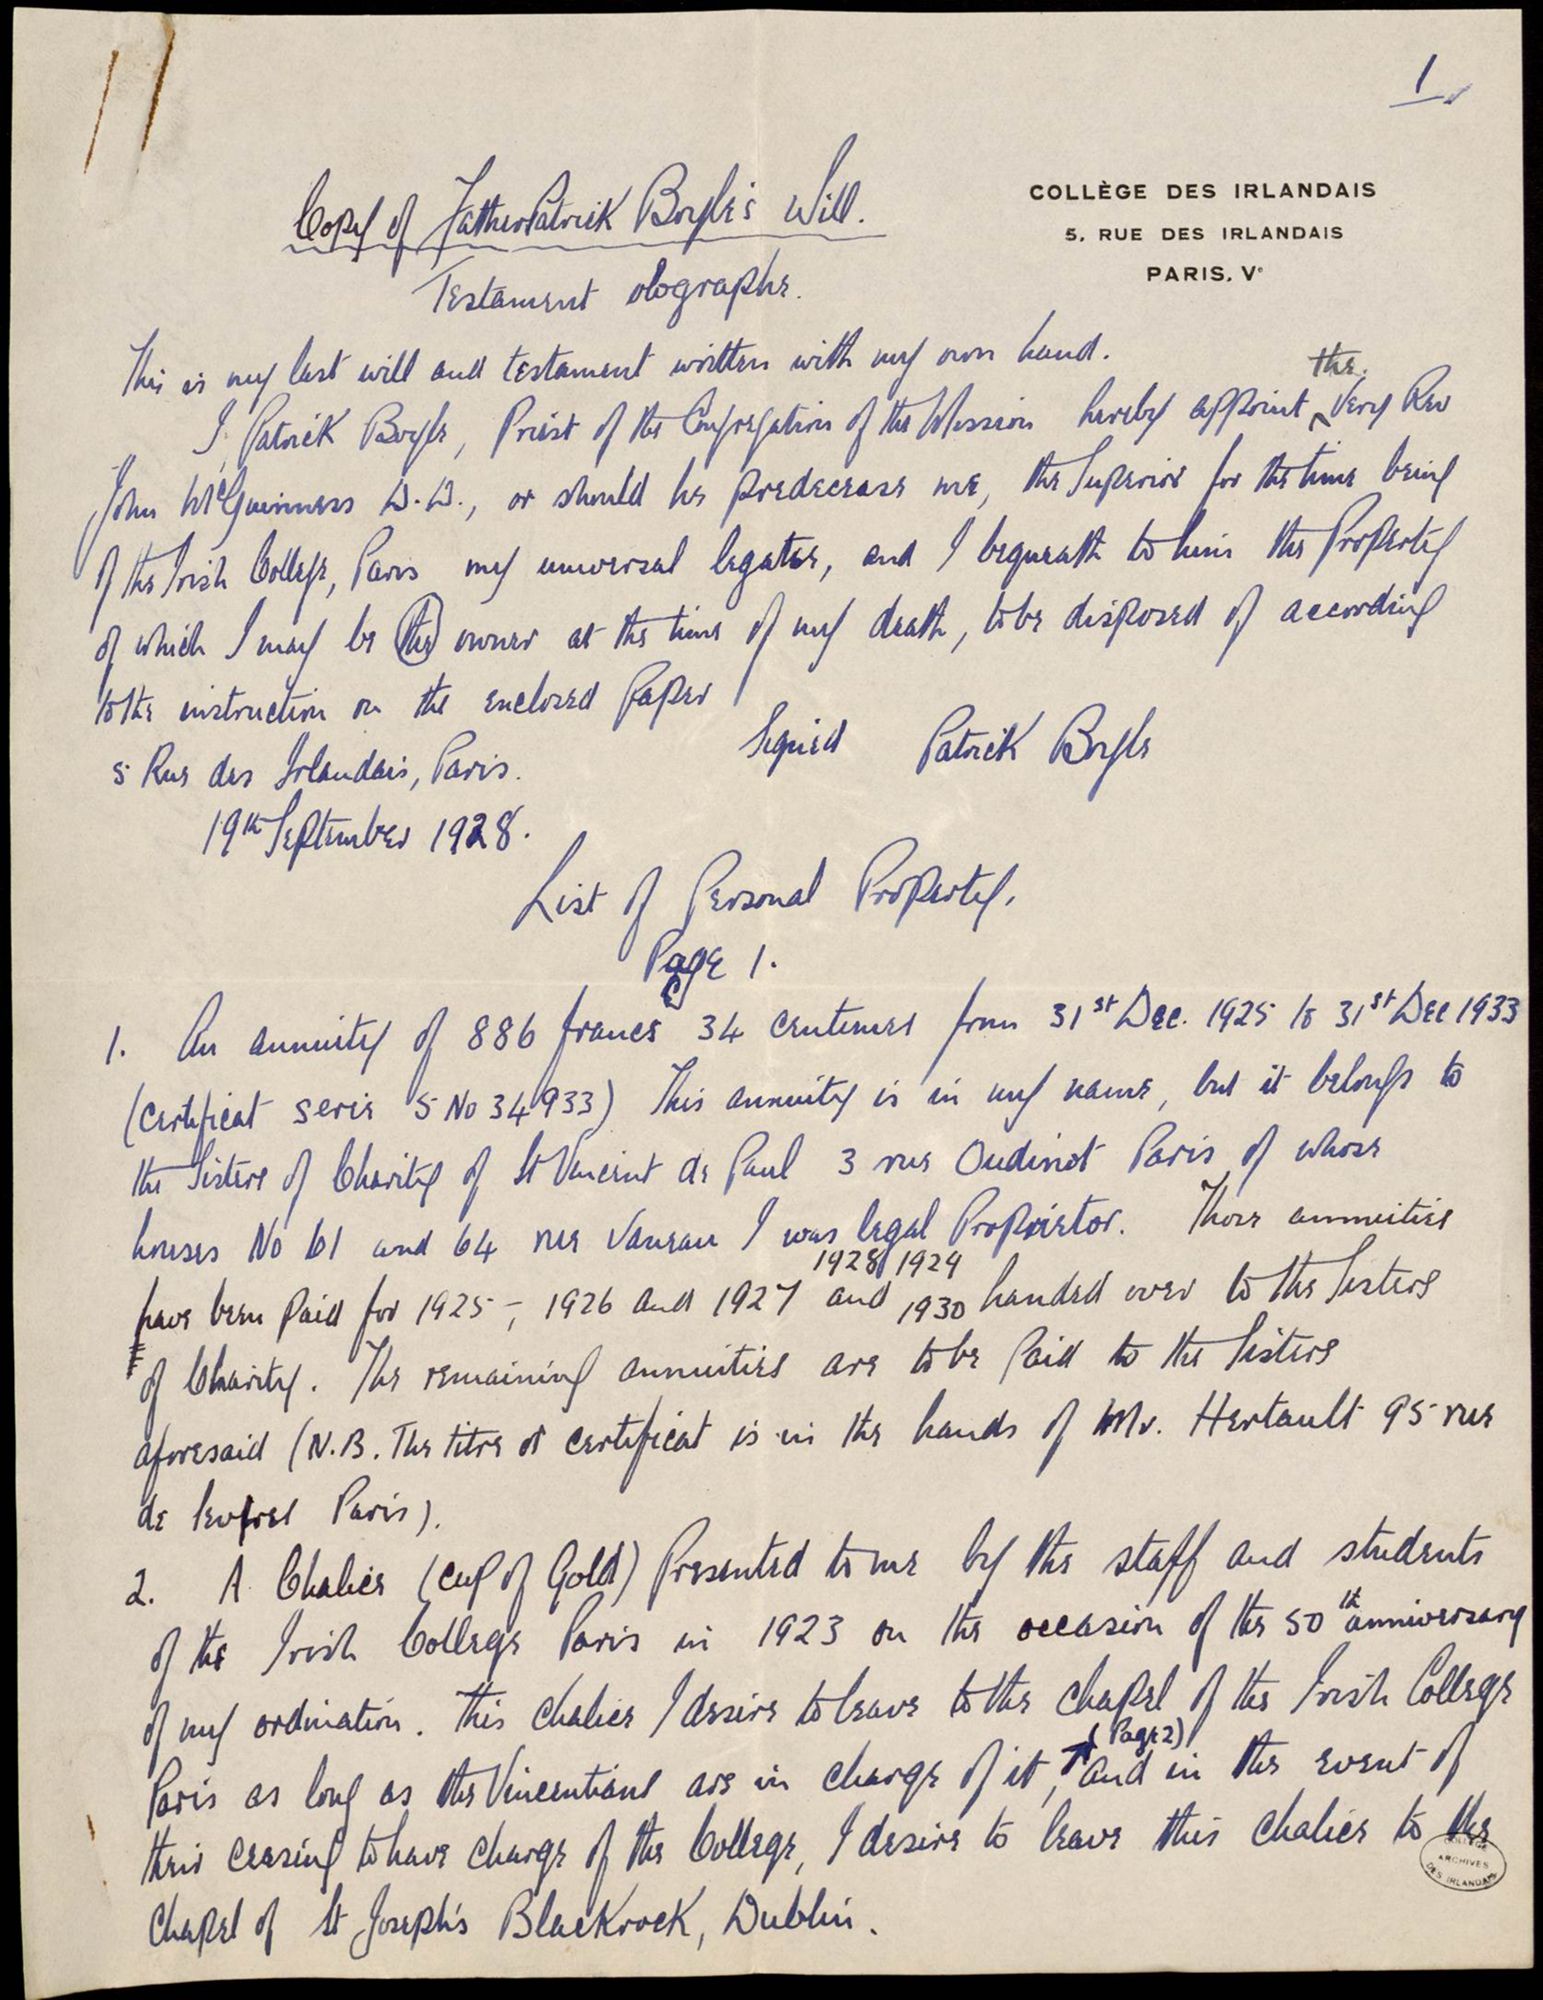 1
COLLÈGE DES IRLANDAIS
5, RUE DES IRLANDAIS
PARIS. Vᵉ
Copy of Father Patrick Boyle's Will.
Testament olographe.
This is my last will and testament written with my own hand.
I, Patrick Boyle, Priest of the Congregation of the Mission hereby appoint the Very Rev
John McGuinness D.D., or should he predecease me, the Superior for the time being
of the Irish College, Paris my universal legatee, and I bequeath to him the Property
of which I may be the owner at the time of my death, to be disposed of according
to the instruction on the enclosed paper
Signed Patrick Boyle
5 Rue des Irlandais, Paris.
19th September 1928.
List of Personal Property.
Page 1.
1. An annuity of 886 francs 34 centimes from 31st Dec. 1925 to 31st Dec 1933
(certificat serie 5 No 34933) This annuity is in my name, but it belongs to
the Sisters of Charity of St Vincent de Paul 3 rue Oudinot Paris of whose
houses No 61 and 64 rue Vaneau I was legal Proprietor. These annuities
have been paid for 1925-, 1926 and 1927 and 1928, 1929 1930 handed over to the Sisters
of Charity. The remaining annuities are to be paid to the Sisters
aforesaid (N.B. The titre or certificat is in the hands of Mr. Hertault 95 rue
de Paris).
2. A Chalice (cup of Gold) presented to me by the staff and students
of the Irish College Paris in 1923 on the occasion of the 50th anniversary
of my ordination. This chalice I desire to leave to the chapel of the Irish College
Paris as long as the Vincentians are in charge of it, (Page 2) and in the event of
their ceasing to have charge of the College, I desire to leave this chalice to the
chapel of St Joseph's Blackrock, Dublin.
COLLÈGE
ARCHIVES
DES IRLANDAIS